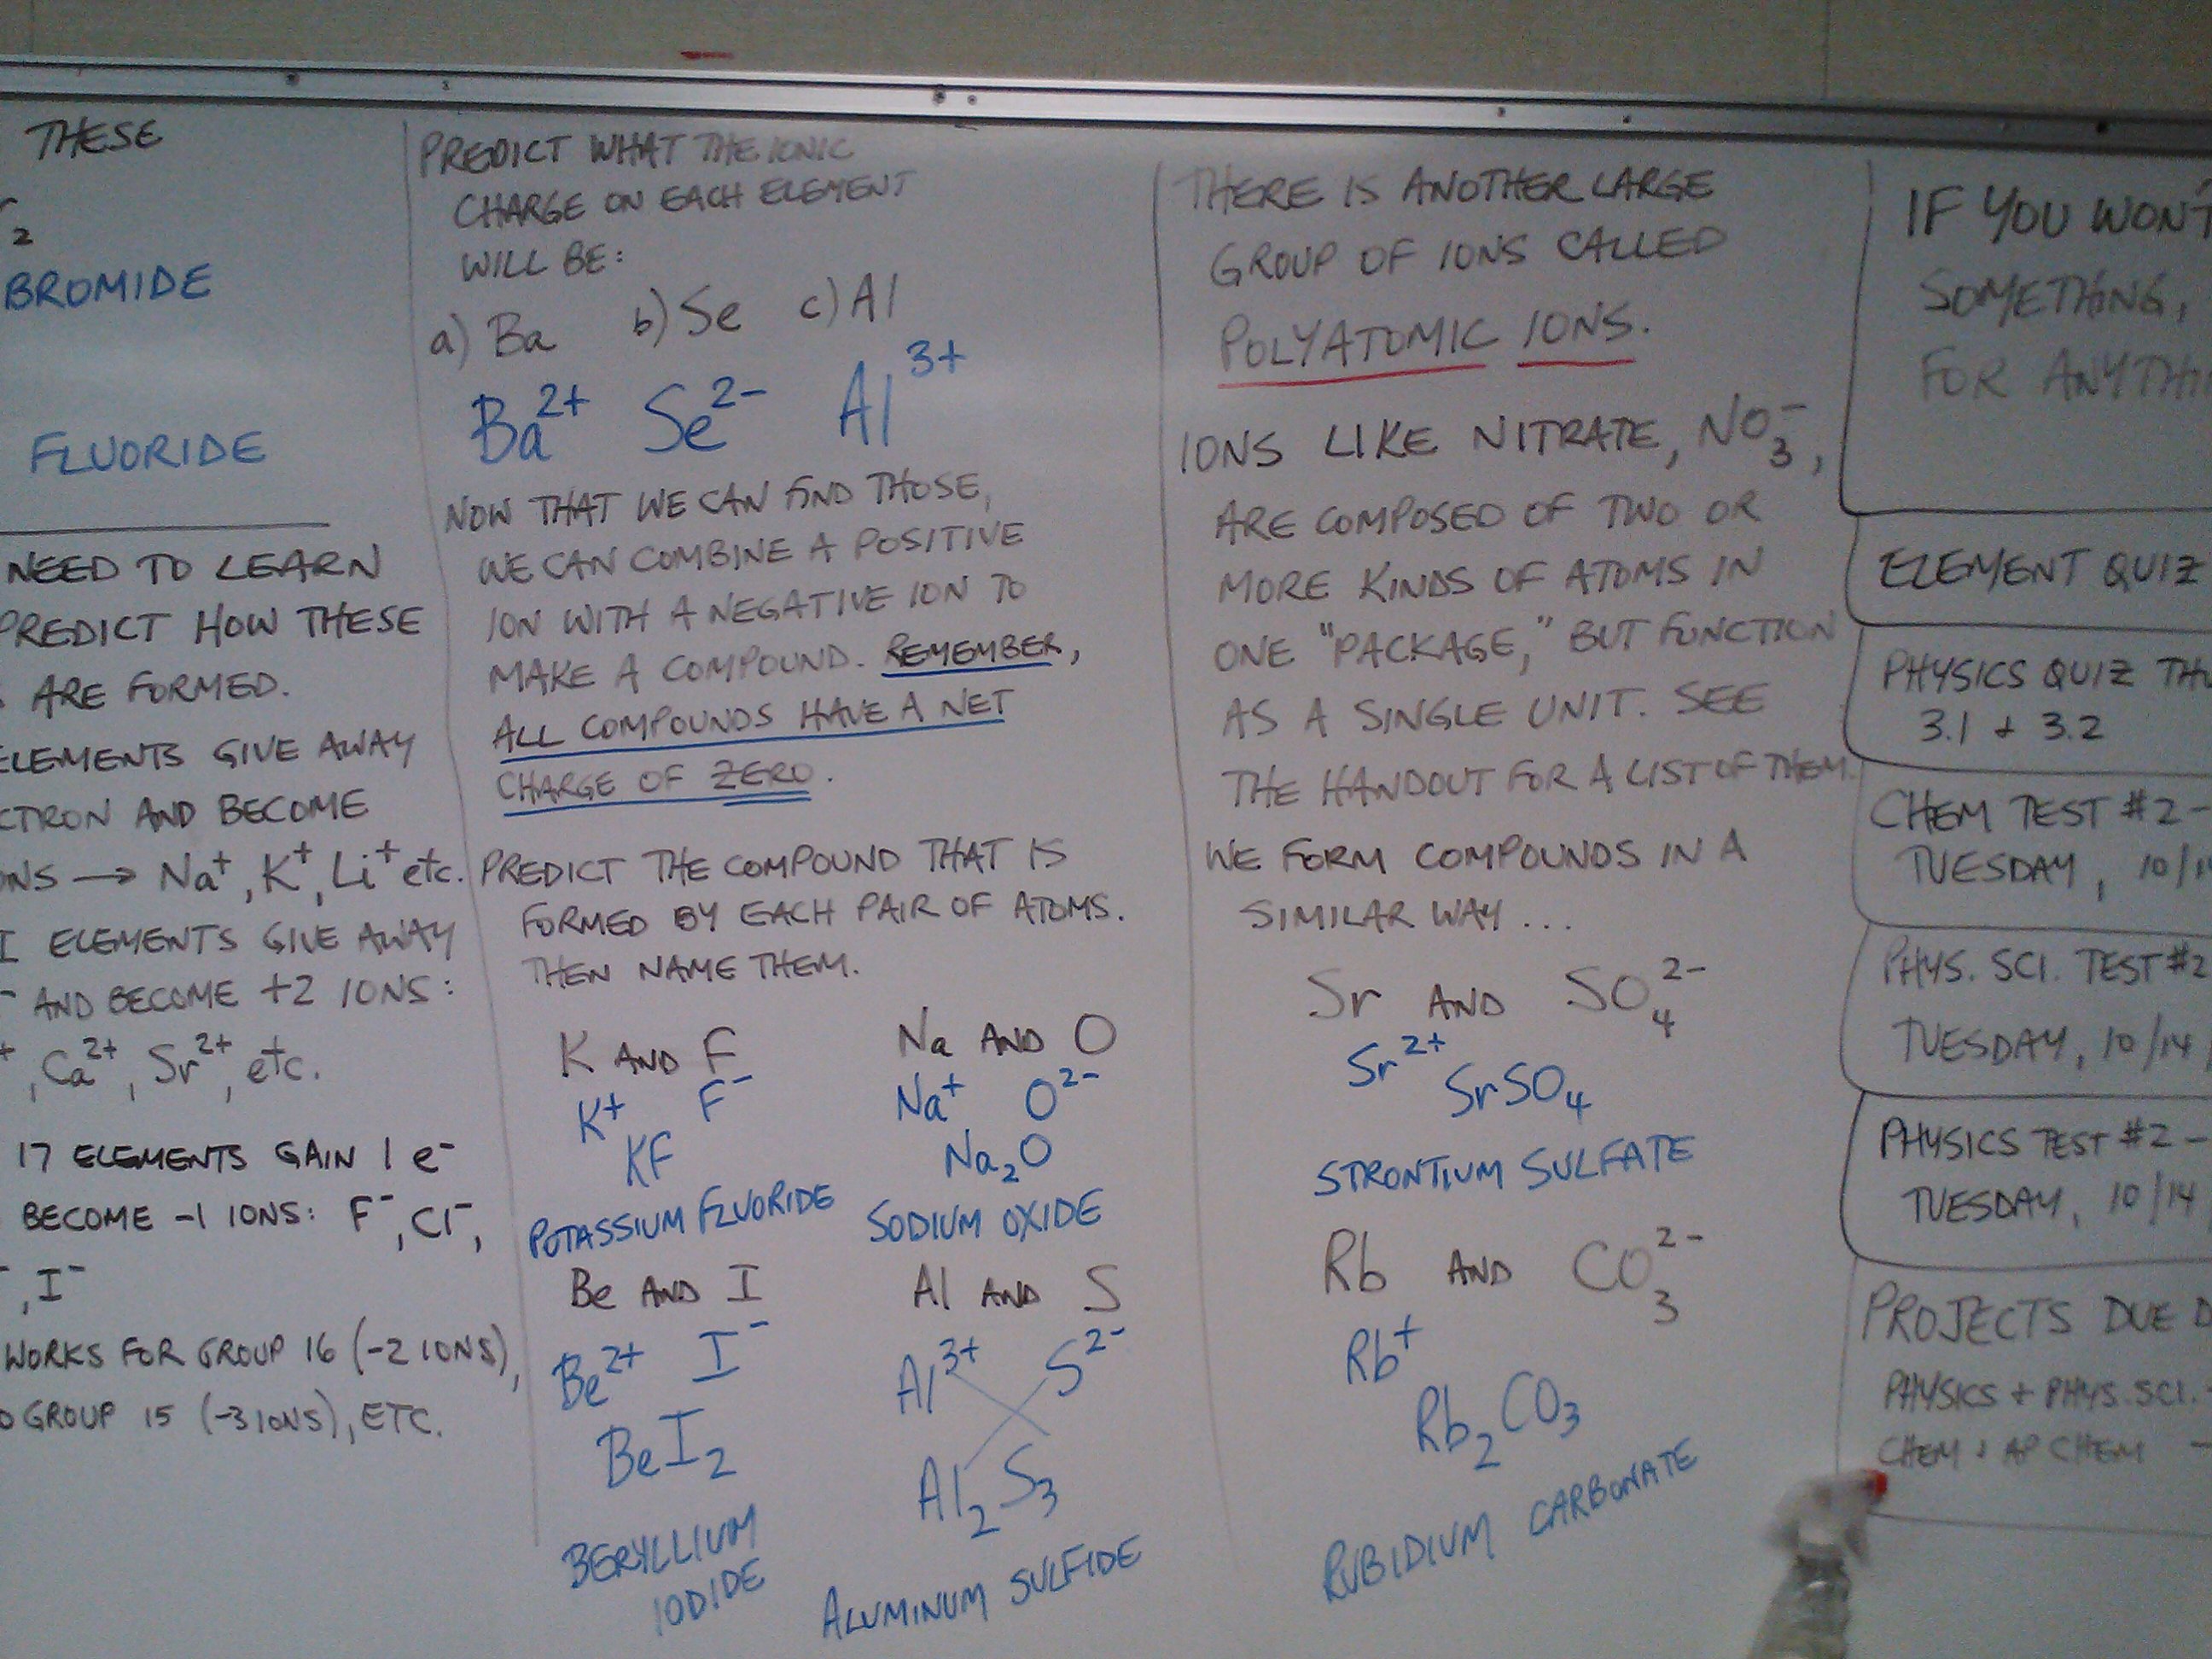 THESE
2
BROMIDE
FLUORIDE
NEED TO LEARN
PREDICT HOW THESE
ARE FORMED.
ELEMENTS GIVE AWAY
AND BECOME
→ Na⁺, K⁺, Li⁺ etc.
I ELEMENTS GIVE AWAY
⁻ AND BECOME +2 IONS:
⁺, Ca²⁺, Sr²⁺, etc.
17 ELEMENTS GAIN 1 e⁻
BECOME -1 IONS: F⁻, Cl⁻,
⁻, I⁻
WORKS FOR GROUP 16 (-2 IONS),
GROUP 15 (-3 IONS), ETC.
PREDICT WHAT THE IONIC
CHARGE ON EACH ELEMENT
WILL BE:
a) Ba b) Se c) Al
Ba²⁺ Se²⁻ Al³⁺
NOW THAT WE CAN FIND THOSE,
WE CAN COMBINE A POSITIVE
ION WITH A NEGATIVE ION TO
MAKE A COMPOUND. REMEMBER,
ALL COMPOUNDS HAVE A NET
CHARGE OF ZERO.
PREDICT THE COMPOUND THAT IS
FORMED BY EACH PAIR OF ATOMS.
THEN NAME THEM.
K AND F
K⁺ F⁻
KF
POTASSIUM FLUORIDE
Na AND O
Na⁺ O²⁻
Na₂O
SODIUM OXIDE
Be AND I
Be²⁺ I⁻
BeI₂
BERYLLIUM
IODIDE
Al AND S
Al³⁺ S²⁻
Al₂S₃
ALUMINUM SULFIDE
THERE IS ANOTHER LARGE
GROUP OF IONS CALLED
POLYATOMIC IONS.
IONS LIKE NITRATE, NO₃⁻,
ARE COMPOSED OF TWO OR
MORE KINDS OF ATOMS IN
ONE "PACKAGE," BUT FUNCTION
AS A SINGLE UNIT. SEE
THE HANDOUT FOR A LIST OF THEM.
WE FORM COMPOUNDS IN A
SIMILAR WAY...
Sr AND SO₄²⁻
Sr²⁺
SrSO₄
STRONTIUM SULFATE
Rb AND CO₃²⁻
Rb⁺
Rb₂CO₃
RUBIDIUM CARBONATE
IF YOU WON'T
SOMETHING,
FOR
ELEMENT QUIZ
PHYSICS QUIZ
3.1 + 3.2
CHEM TEST #2 -
TUESDAY, 10/14
PHYS. SCI. TEST #2
TUESDAY, 10/14
PHYSICS TEST #2 -
TUESDAY, 10/14
PROJECTS DUE
PHYSICS + PHYS. SCI.
CHEM + AP CHEM -